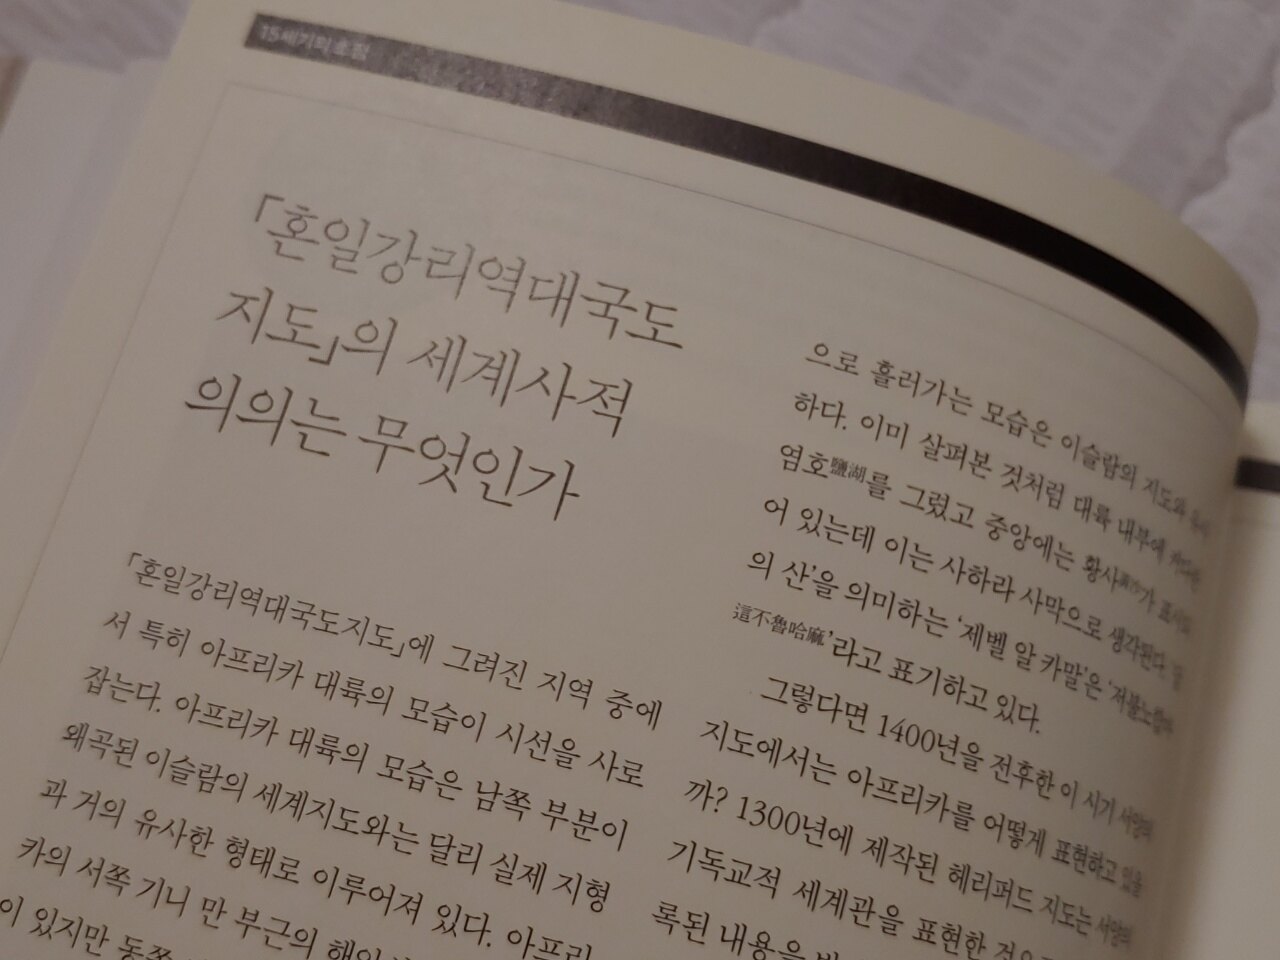 15세기의 초점
「혼일강리역대국도
지도」의 세계사적
의의는 무엇인가
「혼일강리역대국도지도」에 그려진 지역 중에
서 특히 아프리카 대륙의 모습이 시선을 사로
잡는다. 아프리카 대륙의 모습은 남쪽 부분이
왜곡된 이슬람의 세계지도와는 달리 실제 지형
과 거의 유사한 형태로 이루어져 있다. 아프리
카의 서쪽 기니 만 부근의 해안
이 있지만 동쪽
으로 흘러가는 모습은 이슬람의 지도와
하다. 이미 살펴본 것처럼 대륙 내부에
염호鹽湖를 그렸고 중앙에는 황사黃沙가 표시되
어 있는데 이는 사하라 사막으로 생각된다. 달
의 산'을 의미하는 '제벨 알 카말'은 '저불노합마
這不魯哈麻'라고 표기하고 있다.
그렇다면 1400년을 전후한 이 시기 서양의
지도에서는 아프리카를 어떻게 표현하고 있을
까? 1300년에 제작된 헤리퍼드 지도는 서양의
기독교적 세계관을 표현한
록된 내용을